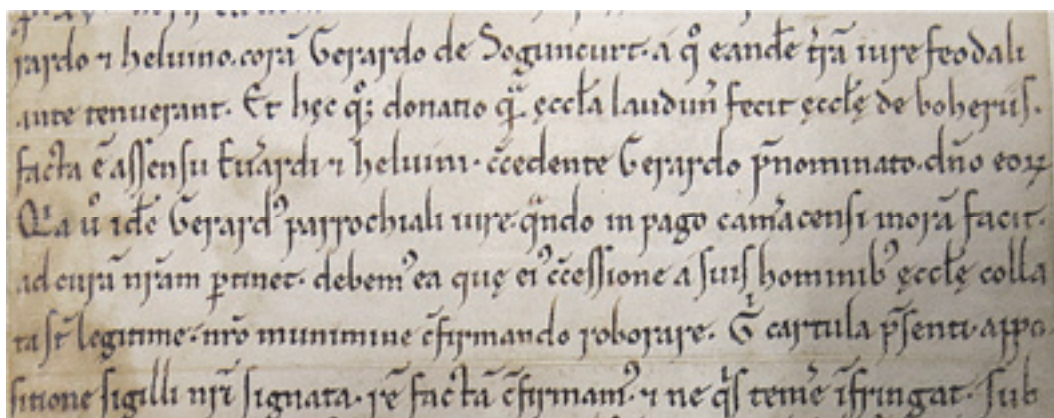 rardo ⁊ heluino. corā Gerardo de Soguncurt. a q̊ eandē t̄rā iure feodali
ante tenuerant. Et hęc q̊ꝫ donatio qͣ̄ ęccl̄a laudun̄ fecit ęccl̄ę de boheriis.
facta ē assensu Eũardi ⁊ heluini. c̄cedente Gerardo p̄nominato. dn̄o eoꝝ
Qͥa ů idē Gerardꝰ parrochiali iure. qͣndo in pago cam̄acensi morā facit.
ad curā nr̄am ꝑtinet. debemꝰ ea quę eiꝰ c̄cessione a suis hominibꝰ ęccl̄ę colla
ta st̄ legitime. nr̄o munimine c̄firmando roborare. Gͥ cartula p̄senti. appo
sitione sigilli nr̄i signata. rē factā c̄firmamꝰ. ⁊ ne qͥs tem̄e īfringat. sub